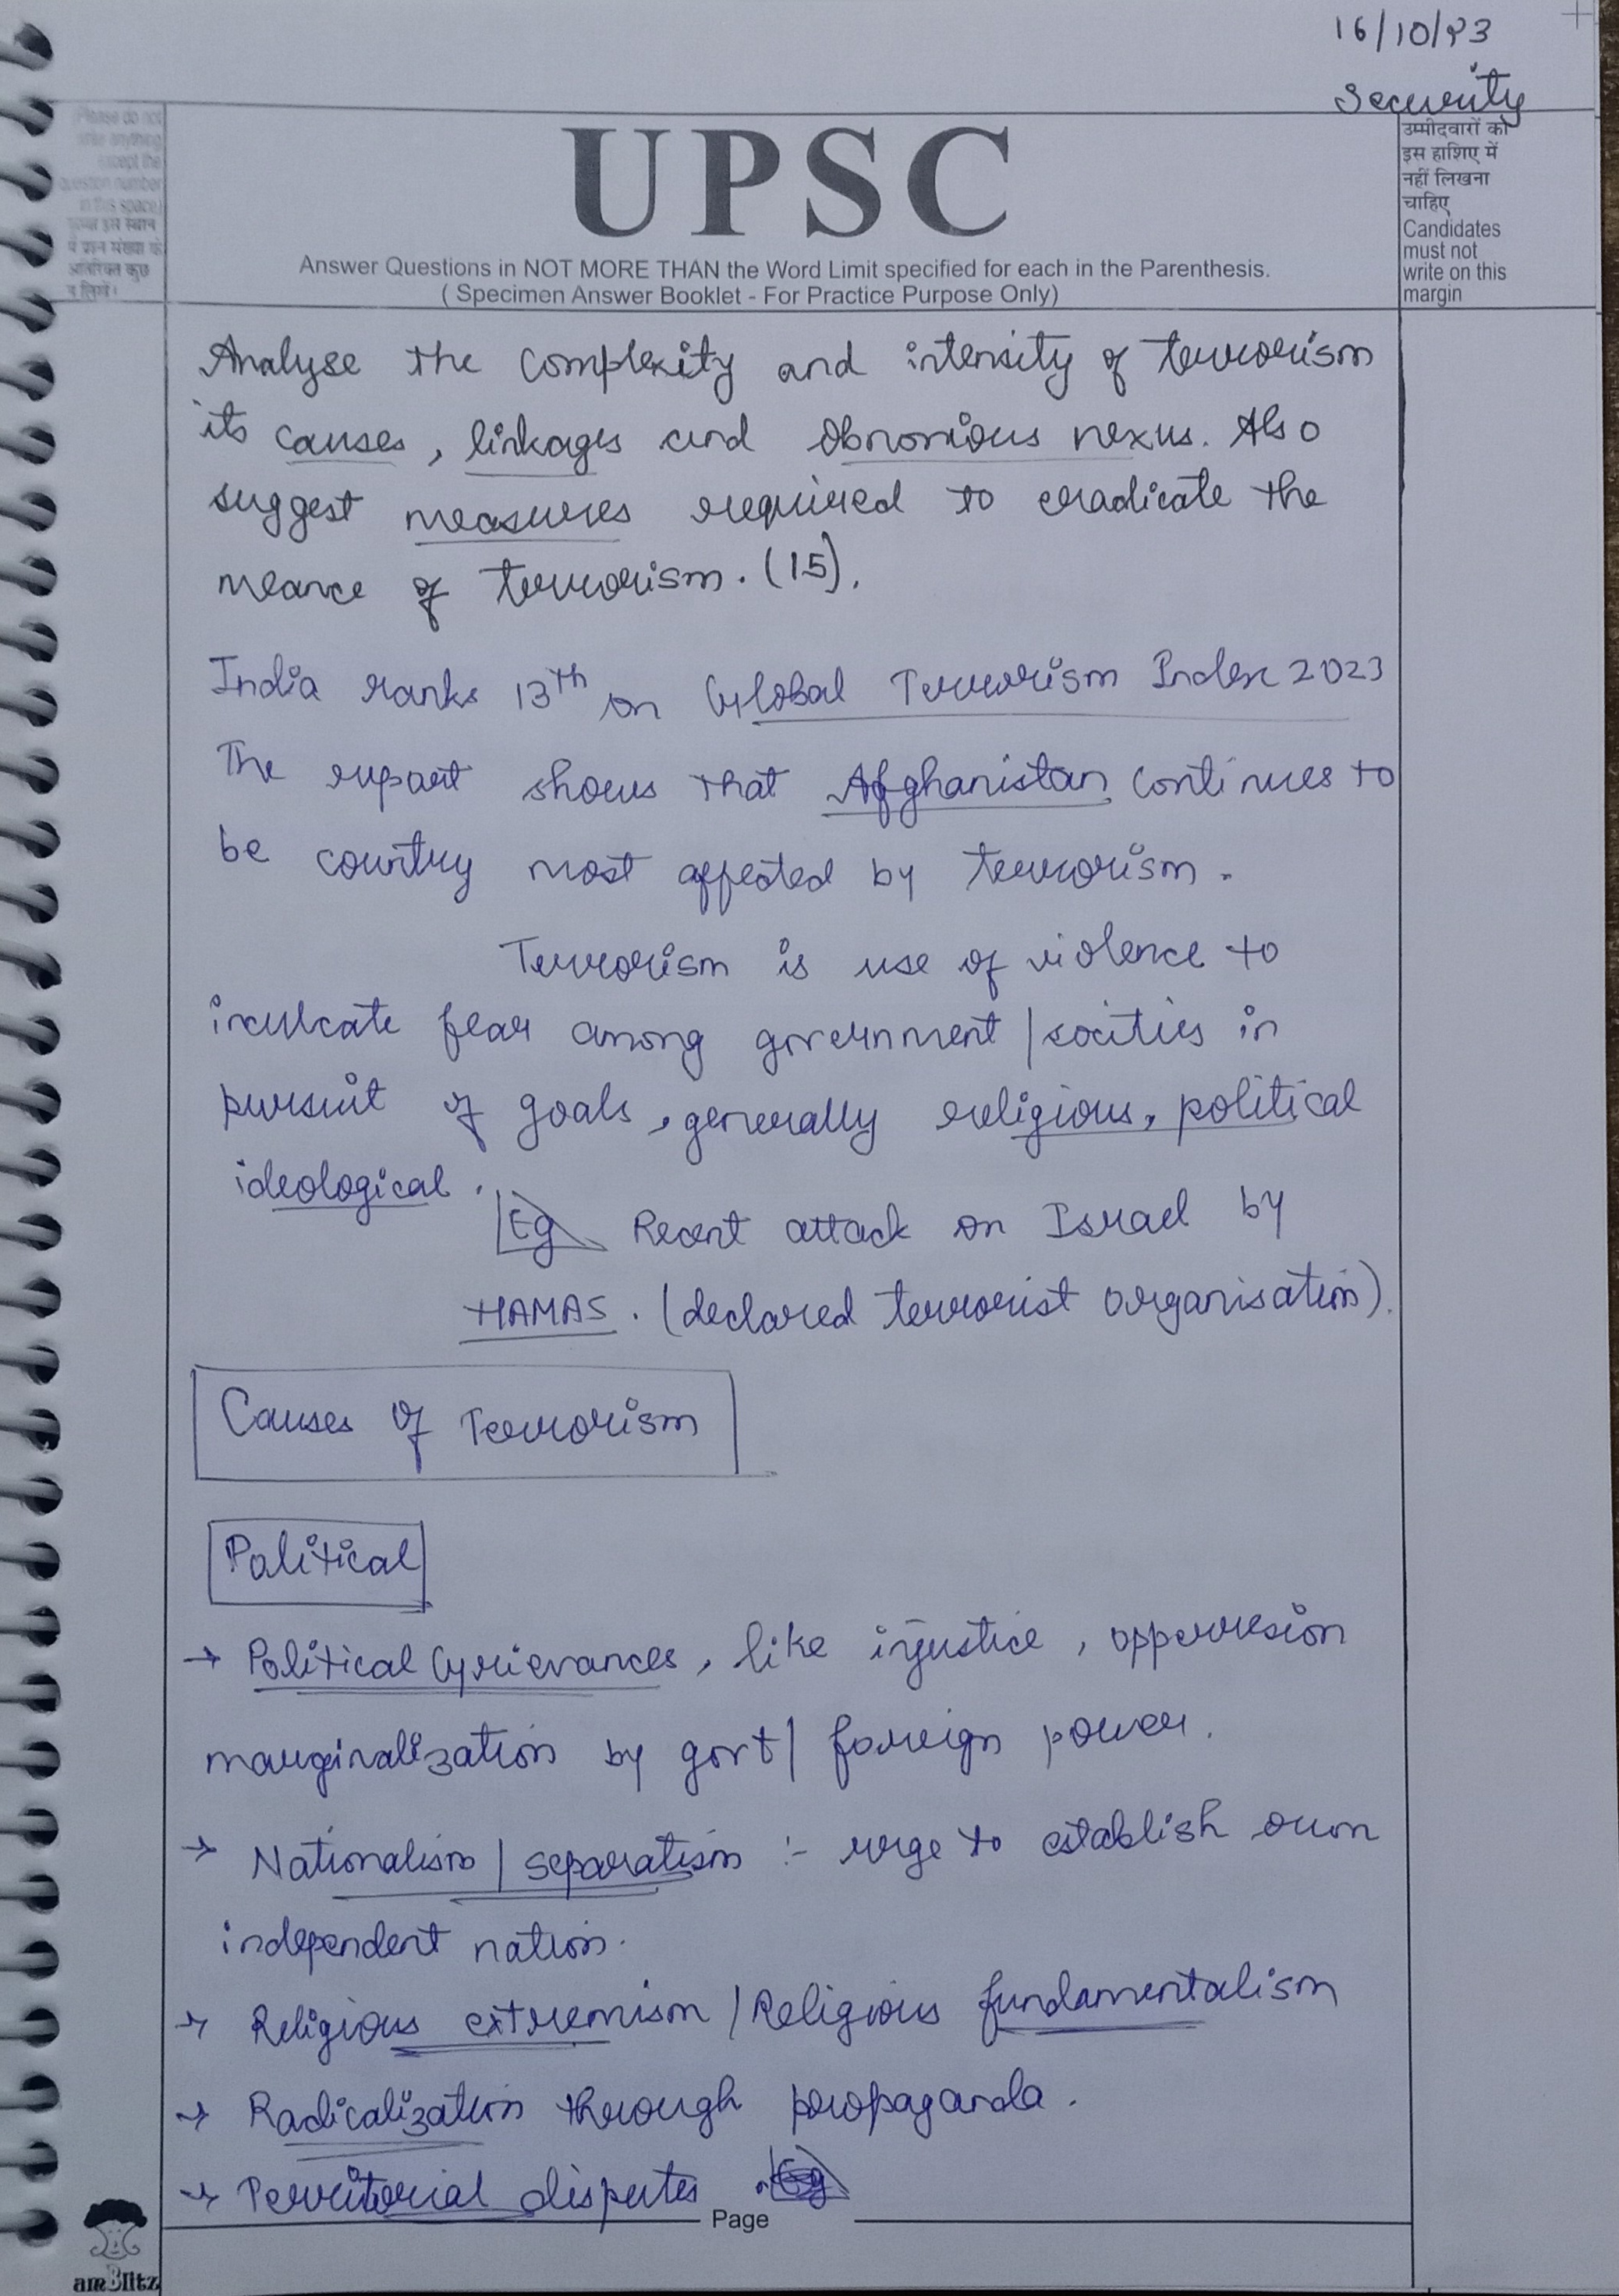 16/10/23
Security
(Please do not
write anything
except the
question number
in this space)
कृपया इस स्थान
में प्रश्न संख्या के
अतिरिक्त कुछ
न लिखें।
UPSC
Answer Questions in NOT MORE THAN the Word Limit specified for each in the Parenthesis.
( Specimen Answer Booklet - For Practice Purpose Only)
उम्मीदवारों को
इस हाशिए में
नहीं लिखना
चाहिए
Candidates
must not
write on this
margin
Analyse the complexity and intensity of terrorism
its causes, linkages and obnonious nexus. Also
suggest measures required to eradicate the
meance of terrorism. (15).
India ranks 13th on Global Terrorism Index 2023
The report shows that Afghanistan continues to
be country most affected by terrorism.
Terrorism is use of violence to
inculcate fear among government / socities in
pursuit of goals, generally religious, political
ideological.
Eg Recent attack on Israel by
HAMAS. (declared terrorist organisation).
Causes of Terrorism
Political
→ Political Grievances, like injustice, opperresion
marginalization by govt / foreign power.
→ Nationalism / separatism :- urge to establish own
independent nation.
→ Religious extremism / Religious fundamentalism
→ Radicalization through propaganda.
→ Territorial disputes. Eg
Page
amBlitz